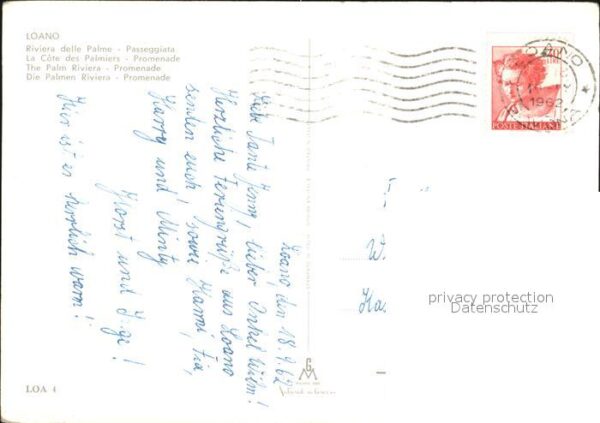 LOANO
Riviera delle Palme - Passeggiata
La Côte des Palmiers - Promenade
The Palm Riviera - Promenade
Die Palmen Riviera - Promenade
LOANO
1962
POSTE ITALIANE
Loano, den 18.9.62
Liebe Tante Jenny! Lieber Onkel Wilm!
Herzliche Feriengrüße aus Loano
senden euch, sowie Hanni, Pia,
Harry und Minty
Horst und Inge!
Hier ist es herrlich warm!
W.
Ha
privacy protection
Datenschutz
LOA 4